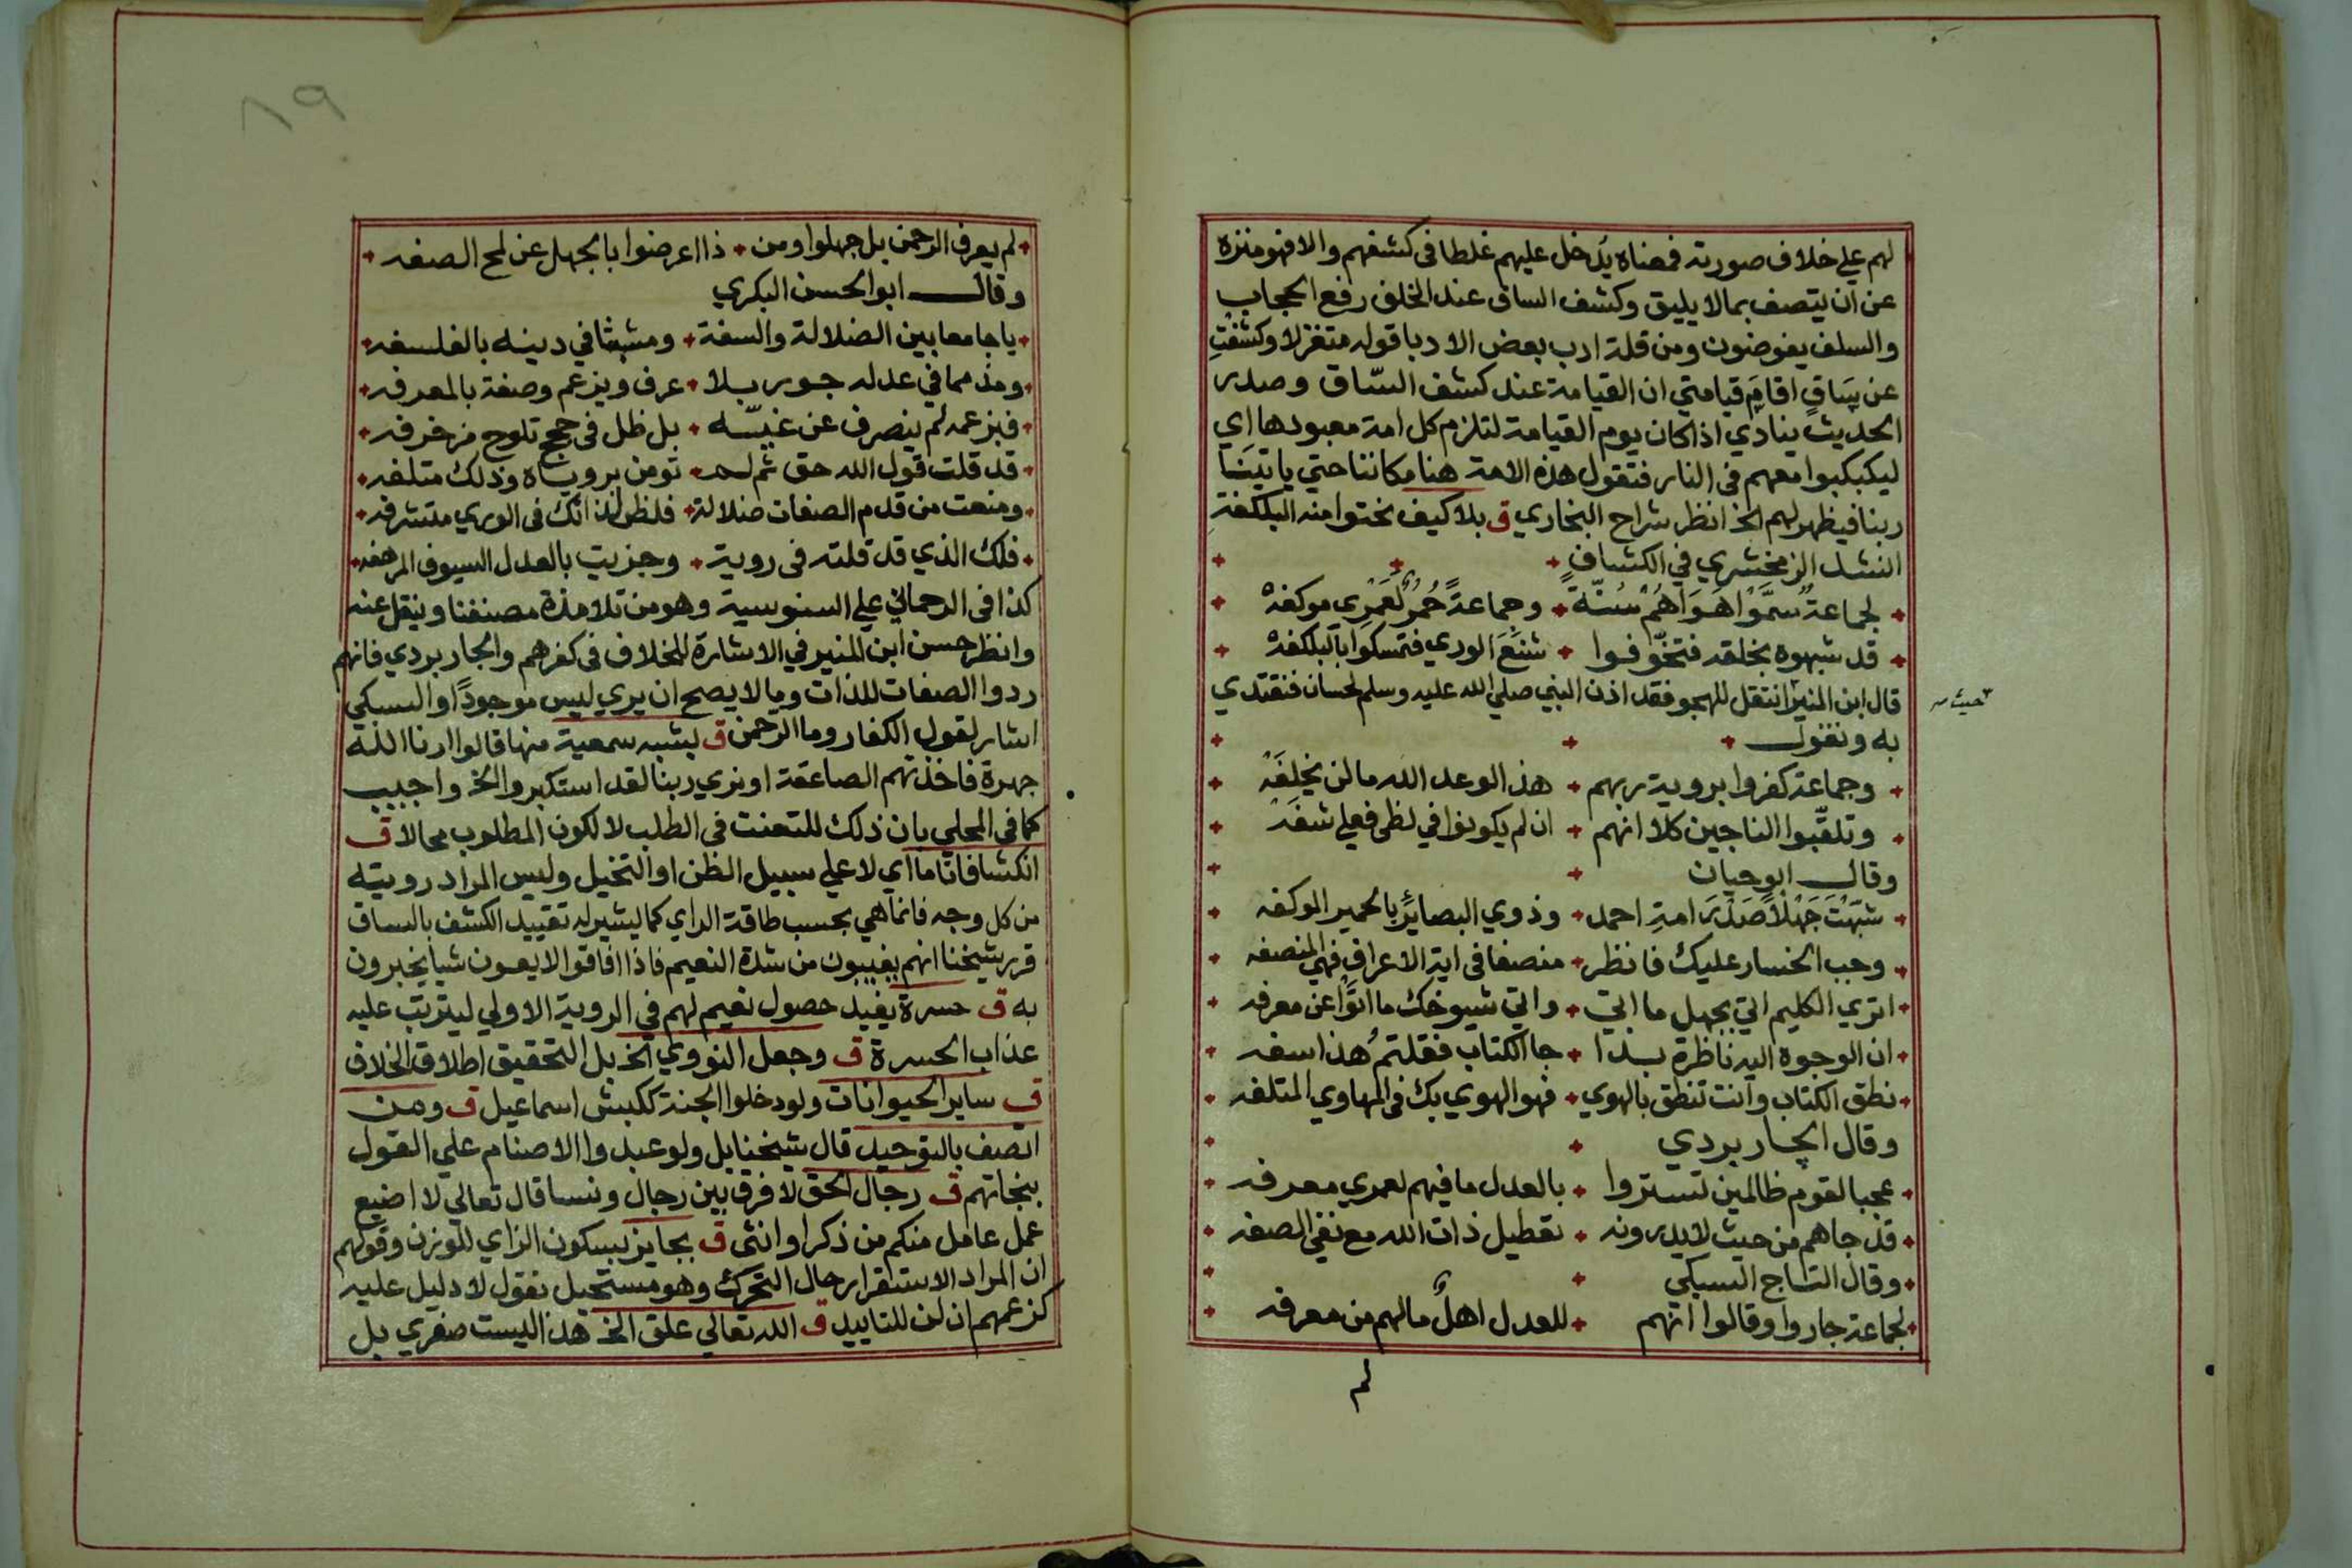 لهم علي خلاف صورته فمعناه يدخل عليهم غلطا في كشفهم والا فهو منزه
عن ان يتصف بما لا يليق وكشف الساق عند الخلف رفع الحجاب
والسلف يفوضون ومن قلة ادب بعض الادبا قوله متغزلا وكشفت
عن ساق اقام قيامتي ان القيامة عند كشف الساق وصدر
الحديث ينادي اذا كان يوم القيامة لتلزم كل امة معبودها اي
ليكبكبوا معهم في النار فتقول هذه الامة هنا مكاننا حتي ياتينا
ربنا فيظهر لهم الخ انظر شراح البخاري ق بلا كيف نحتوا منه البلكفة
انشد الزمخشري في الكشاف
لجماعة سموا هواهم سنة وجماعة حمر لعمري موكفه
قد شبهوه بخلقه فتخوفوا شنع الوري فتمسكوا بالبلكفه
قال ابن المنير انتقل للهجو فقد اذن النبي صلي الله عليه وسلم لحسان فنقتدي
حيث
به ونقول
وجماعة كفروا بروية ربهم هذا لوعد الله ما لن يخلفه
وتلقبوا الناجين كلا انهم ان لم يكونوا في لظي فعلي شفه
وقال ابو حيان
شبهت جهلا صدر امة احمد وذوي البصائر بالحمير الموكفه
وجب الخسار عليك فانظر منصفا في اية الاعراف فهي المنصفه
اتري الكليم اتي بجهل ما اتي واتي شيوخك ما اتوا عن معرفه
ان الوجوه اليه ناظرة بذا جا الكتاب فقلتم هذا سفه
نطق الكتاب وانت تنطق بالهوي فهو الهوي بك في المهاوي المتلفه
وقال الجاربردي
عجبا لقوم ظالمين تستروا بالعدل ما فيهم لعمري معرفه
قد جاهم من حيث لا يدرونه تعطيل ذات الله مع نفي الصفه
وقال التاج السبكي
لجماعة جاروا وقالوا انهم للعدل اهل ما لهم من معرفه
لم
٨٩
لم يعرف الرحمن بل جهلوا ومن ذا اعرضوا بالجهل عن لمح الصفه
وقال ابو الحسن البكري
يا جامعا بين الضلالة والسفة ومشبثا في دينه بالفلسفه
ومذمما في عدله جور بلا عرف ويزعم وصفة بالمعرفه
فبزعمه لم ينصرف عن غيه بل ظل في حجج تلوح مزخرفه
قد قلت قول الله حق ثم لم تومن بروياه وذلك متلفه
ومنعت من قدم الصفات ضلالة فلظي لذاتك في الوري متشرفه
فلك الذي قد قلته في روية وجزيت بالعدل السيوف المرهفه
كذا في الرحماني علي السنوسية وهو من تلامذة مصنفنا وينقل عنه
وانظر حسن ابن المنير في الاشارة للخلاف في كفرهم والجاربردي فانهم
ردوا الصفات للذات وما لا يصح ان يري ليس موجودا والسبكي
اشار لقول الكفار وما الرحمن ق لشبه سمعية منها قالوا ارنا الله
جهرة فاخذتهم الصاعقة او نري ربنا لقد استكبروا الخ واجيب
كما في المحلي بان ذلك للتعنت في الطلب لا لكون المطلوب محالا ق
انكشافا تاما اي لا علي سبيل الظن او التخيل وليس المراد رويته
من كل وجه فانما هي بحسب طاقة الراي كما يشير له تقييد الكشف بالساق
قرر شيخنا انهم يغيبون من شدة النعيم فاذا افاقوا لا يعون شيا يخبرون
به ق حسرة يفيد حصول نعيم لهم في الروية الاولي ليترتب عليه
عذاب الحسرة ق وجعل النووي الخ بل التحقيق اطلاق الخلاف
ق ساير الحيوانات ولو دخلوا الجنة ككبش اسماعيل ق ومن
اتصف بالتوحيد قال شيخنا بل ولو عبدوا الاصنام علي القول
بنجاتهم ق رجال الحق لا فرق بين رجال ونسا قال تعالي لا اضيع
عمل عامل منكم من ذكر او انثي ق بجايز بسكون الزاي للوزن وقولهم
ان المراد الاستقرار حال التحرك وهو مستحيل نقول لا دليل عليه
كزعمهم ان لن للتاييد ق الله تعالي علق الخ هذا ليست صغري بل